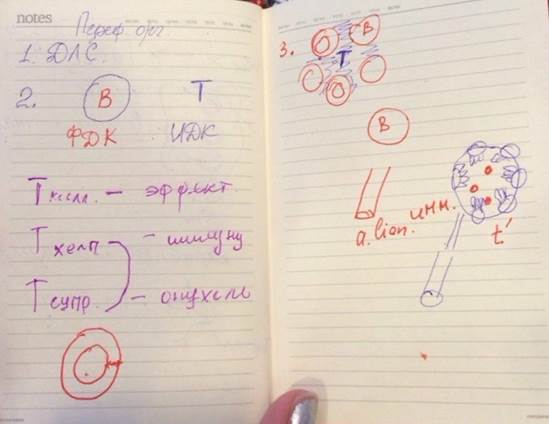 notes
Периф. орг.
1. ДЛС.
2. В Т
ФДК ИДК
Т килл. – эффект.
Т хелп – иммуну
Т супр. – опухоли
3. В
Т
В
a. lien. инн.
t'